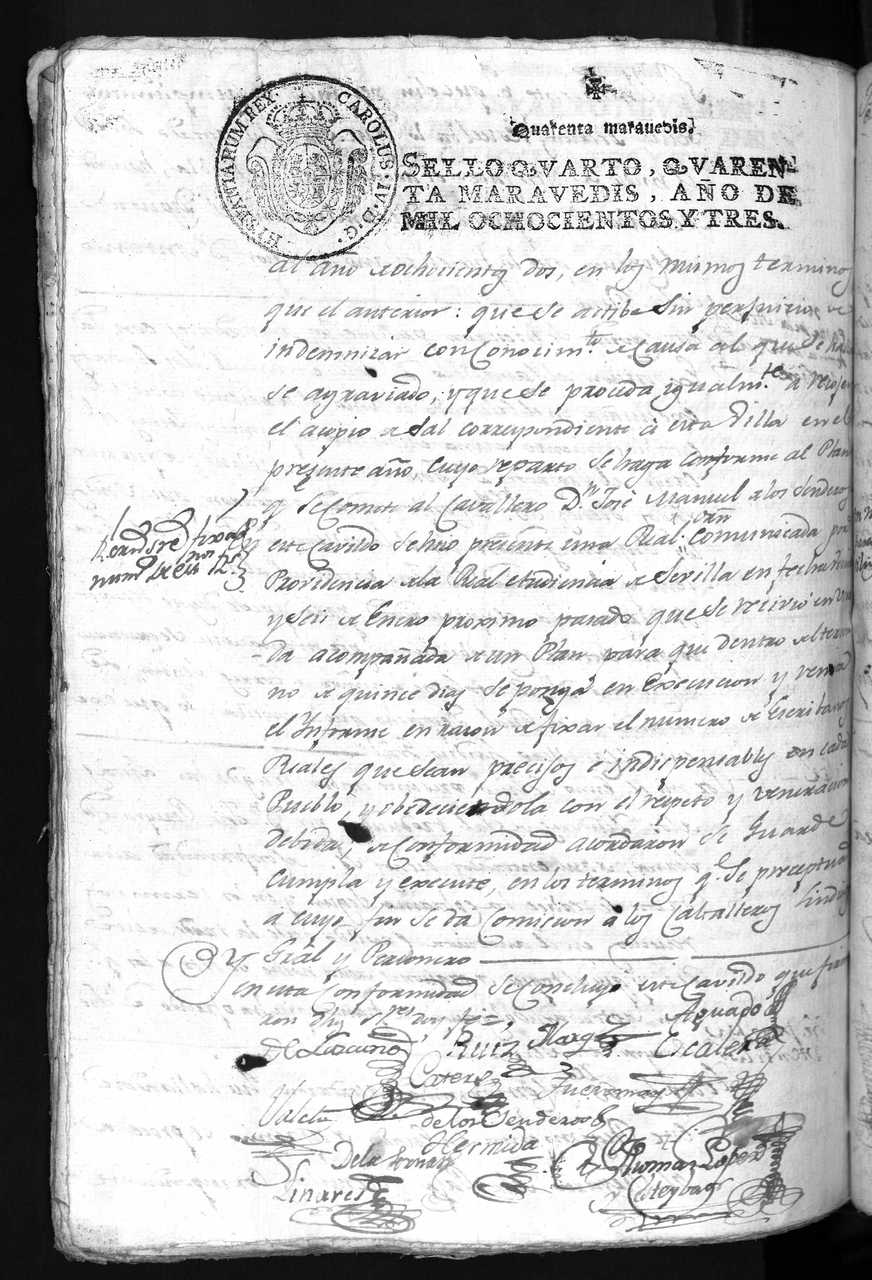 HISPANIARUM REX CAROLUS · IV · D · G ·
Quarenta maravedis.
SELLO QVARTO, QVAREN-
TA MARAVEDIS, AÑO DE
MIL OCHOCIENTOS Y TRES.
al año de ochocientos dos, en los mismos terminos
que el anterior: que se actibe sin perjuicio de
indemnizar con conocim.to de causa al que se
se agraviado, y que se proceda igualm.te a
el acopio de sal correspondiente a esta Villa en el
presente año, cuyo reparto se haga conforme al Plan
q se comete al Cavallero D.n José Manuel de los Senderos
num.o de
este Cavildo se hizo presente una Real orn comunicada por
Providencia de la Real Audiencia de Sevilla en fecha
y seis de Enero proximo pasado que se recivió en
da acompañada de un Plan para que dentro del termi
no de quince dias se ponga en execucion y
el Informe en razon de fixar el numero de Escribanos
Reales que sean precisos e indispensables en cada
Pueblo, y obedeciendola con el respeto y veneracion
debida, de conformidad acordaron se guarde
cumpla y execute, en los terminos q.e se
a cuyo fin se da Comicion a los Caballeros Sindico
Gral y Personero
Y en esta conformidad se concluyo este Cavildo que firma
ron dhos
Ruiz Marqz Aguado
Escalera
de los Senderos
Hermida
Linares
Thomas Lopez